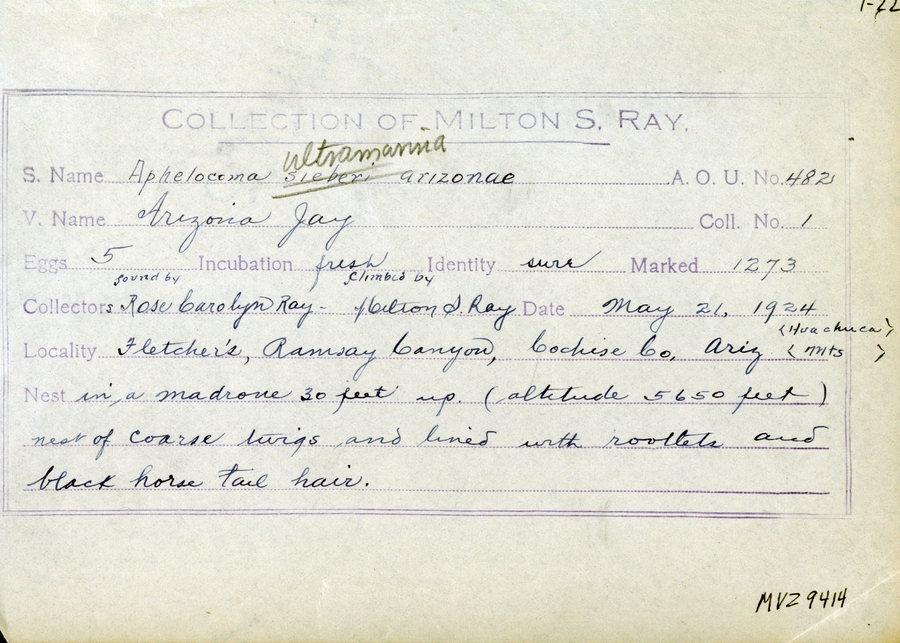 1-22
COLLECTION OF MILTON S. RAY.
ultramarina
S. Name Aphelocoma sieberi arizonae A. O. U. No. 482
V. Name Arizona Jay Coll. No. 1
Eggs 5 Incubation fresh Identity sure Marked 1273
found by climbed by
Collectors Rose Carolyn Ray - Milton S. Ray Date May 21, 1924
(Huachuca)
Locality Fletcher's, Ramsay Canyon, Cochise Co, Ariz ( mts )
Nest in a madrone 30 feet up. (altitude 5650 feet)
nest of coarse twigs and lined with rootlets and
black horse tail hair.
MVZ 9414